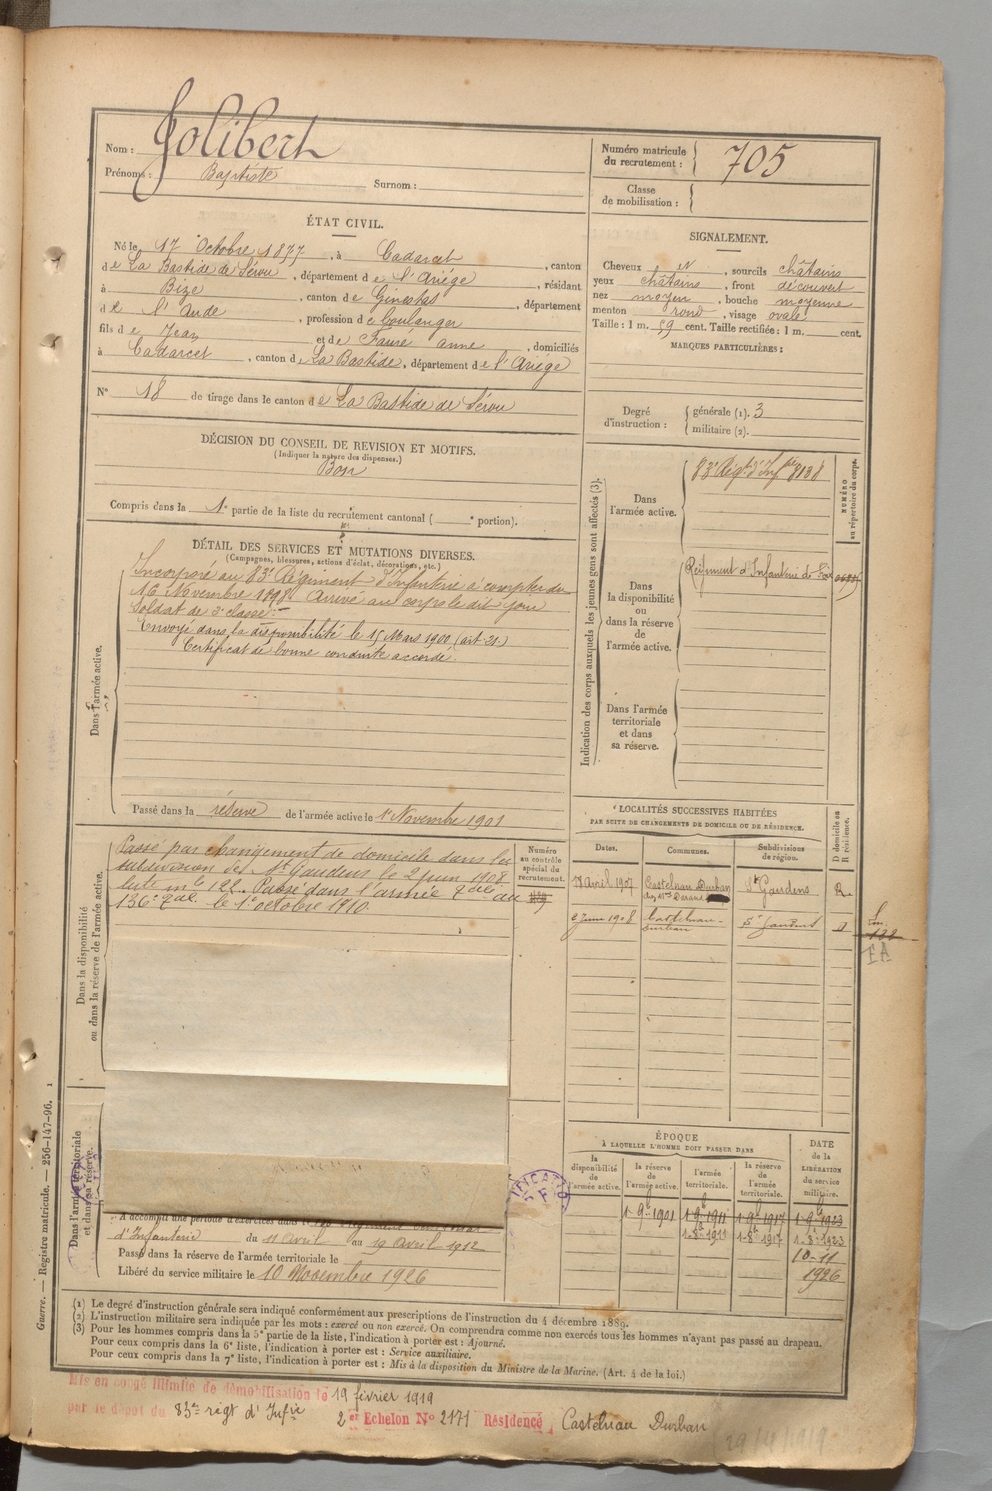 Nom : Jolibert
Prénoms : Baptiste Surnom :
Numéro matricule du recrutement : 705
Classe de mobilisation :
ÉTAT CIVIL.
Né le 17 Octobre 1877, à Cadarcet, canton
de La Bastide de Sérou, département de l'Ariège, résidant
à Bize, canton de Ginestas, département
de l'Aude, profession de boulanger
fils de Jean et de Fauré anne, domiciliés
à Cadarcet, canton de La Bastide, département de l'Ariège
N° 18 de tirage dans le canton de La Bastide de Sérou
SIGNALEMENT.
Cheveux et, sourcils châtains
yeux châtains, front découvert
nez moyen, bouche moyenne
menton rond, visage ovale
Taille : 1 m. 59 cent. Taille rectifiée : 1 m. cent.
MARQUES PARTICULIÈRES :
Degré d'instruction : générale (1). 3
militaire (2).
DÉCISION DU CONSEIL DE REVISION ET MOTIFS.
(Indiquer la nature des dispenses.)
Bon
Compris dans la 1e partie de la liste du recrutement cantonal ( e portion).
DÉTAIL DES SERVICES ET MUTATIONS DIVERSES.
(Campagnes, blessures, actions d'éclat, décorations, etc.)
Dans l'armée active.
Incorporé au 83e Régiment d'Infanterie à compter du
16 Novembre 1898. Arrivé au corps le dit jour
Soldat de 2e classe.
Envoyé dans la disponibilité le 15 Mars 1900 (art. 21.)
Certificat de bonne conduite accordé.
Passé dans la réserve de l'armée active le 1er Novembre 1901
Indication des corps auxquels les jeunes gens sont affectés (3).
NUMÉRO au répertoire du corps.
Dans l'armée active.
83e Régt d'Infrie 8138
Dans la disponibilité ou dans la réserve de l'armée active.
Régiment d'Infanterie de Foix
Dans l'armée territoriale et dans sa réserve.
Dans la disponibilité ou dans la réserve de l'armée active.
Passé par changement de domicile dans la
subdivision de St Gaudens le 2 juin 1908
liste n° 122. Passé dans l'armée tale au
136e tal le 1er octobre 1910.
Numéro au contrôle spécial du recrutement.
LOCALITÉS SUCCESSIVES HABITÉES
PAR SUITE DE CHANGEMENTS DE DOMICILE OU DE RÉSIDENCE.
Dates. Communes. Subdivisions de région. D domicile ou R résidence.
Avril 1907 Castelnau Durban St Gaudens R
2 Juin 1908 Castelnau-Durban St Gaudens D
122
EA
ÉPOQUE
À LAQUELLE L'HOMME DOIT PASSER DANS
la disponibilité de l'armée active. la réserve de l'armée active. l'armée territoriale. la réserve de l'armée territoriale.
DATE de la LIBÉRATION du service militaire.
1-9bre 1901 1-9bre 1911 1-9bre 1917 1-9bre 1923
1-8bre 1911 1-8bre 1917 1-8bre 1923
10-11
1926
Dans l'armée territoriale et dans sa réserve.
A accompli une période d'exercices dans le
d'Infanterie du 11 Avril au 19 Avril 1912
Passé dans la réserve de l'armée territoriale le
Libéré du service militaire le 10 Novembre 1926
Guerre. — Registre matricule. — 256-147-96. 1
(1) Le degré d'instruction générale sera indiqué conformément aux prescriptions de l'instruction du 4 décembre 1889.
(2) L'instruction militaire sera indiquée par les mots : exercé ou non exercé. On comprendra comme non exercés tous les hommes n'ayant pas passé au drapeau.
(3) Pour les hommes compris dans la 5e partie de la liste, l'indication à porter est : Ajourné.
Pour ceux compris dans la 6e liste, l'indication à porter est : Service auxiliaire.
Pour ceux compris dans la 7e liste, l'indication à porter est : Mis à la disposition du Ministre de la Marine. (Art. 4 de la loi.)
Mis en congé illimité de démobilisation le 19 février 1919
par le dépôt du 83e régt d'Infie 2er Echelon N° 2171 Résidence Castelnau Durban